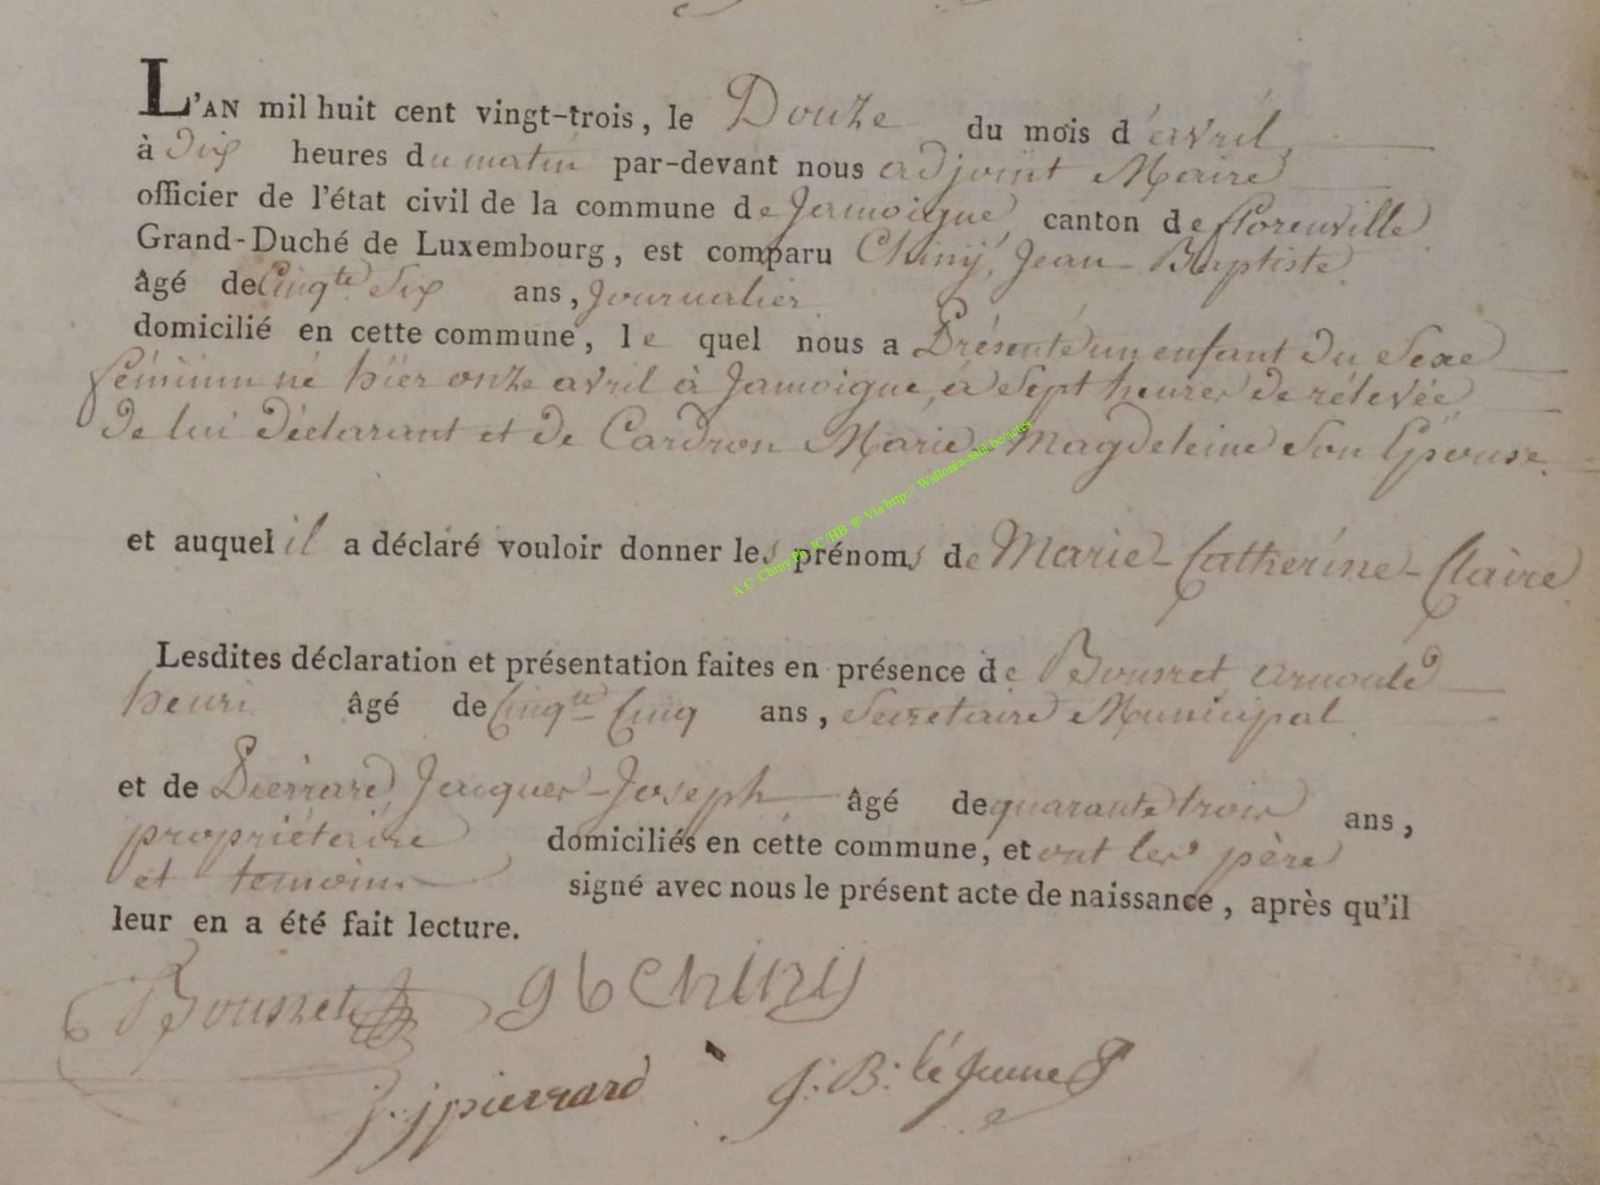 L'AN mil huit cent vingt-trois, le Douze du mois d'avril
à dix heures du matin par-devant nous adjoint Maire
officier de l'état civil de la commune de Jamoigne, canton de florenville
Grand-Duché de Luxembourg, est comparu Chiny, Jean-Baptiste
âgé de Cinqte Six ans, Journalier
domicilié en cette commune, le quel nous a Présenté un enfant du Sexe
féminin né hier onze avril à Jamoigne, à Sept heures de rélevée
de lui déclarant et de Cardron Marie Magdeleine Son Epouse.
et auquel il a déclaré vouloir donner les prénoms de Marie-Catherine-Claire
Lesdites déclaration et présentation faites en présence de Bousret arnould
henri âgé de Cinqte Cinq ans, Secretaire Municipal
et de Pierrard, Jacques-Joseph âgé de quarante trois ans,
propriétaire domiciliés en cette commune, et ont les père
et temoins signé avec nous le présent acte de naissance, après qu'il
leur en a été fait lecture.
Bousret gb Chiny
j.j pierrard J: B: léJeune
A.C. Chiny Ph JC/HB ® Via http:// Wallonia-asbl.be/actes